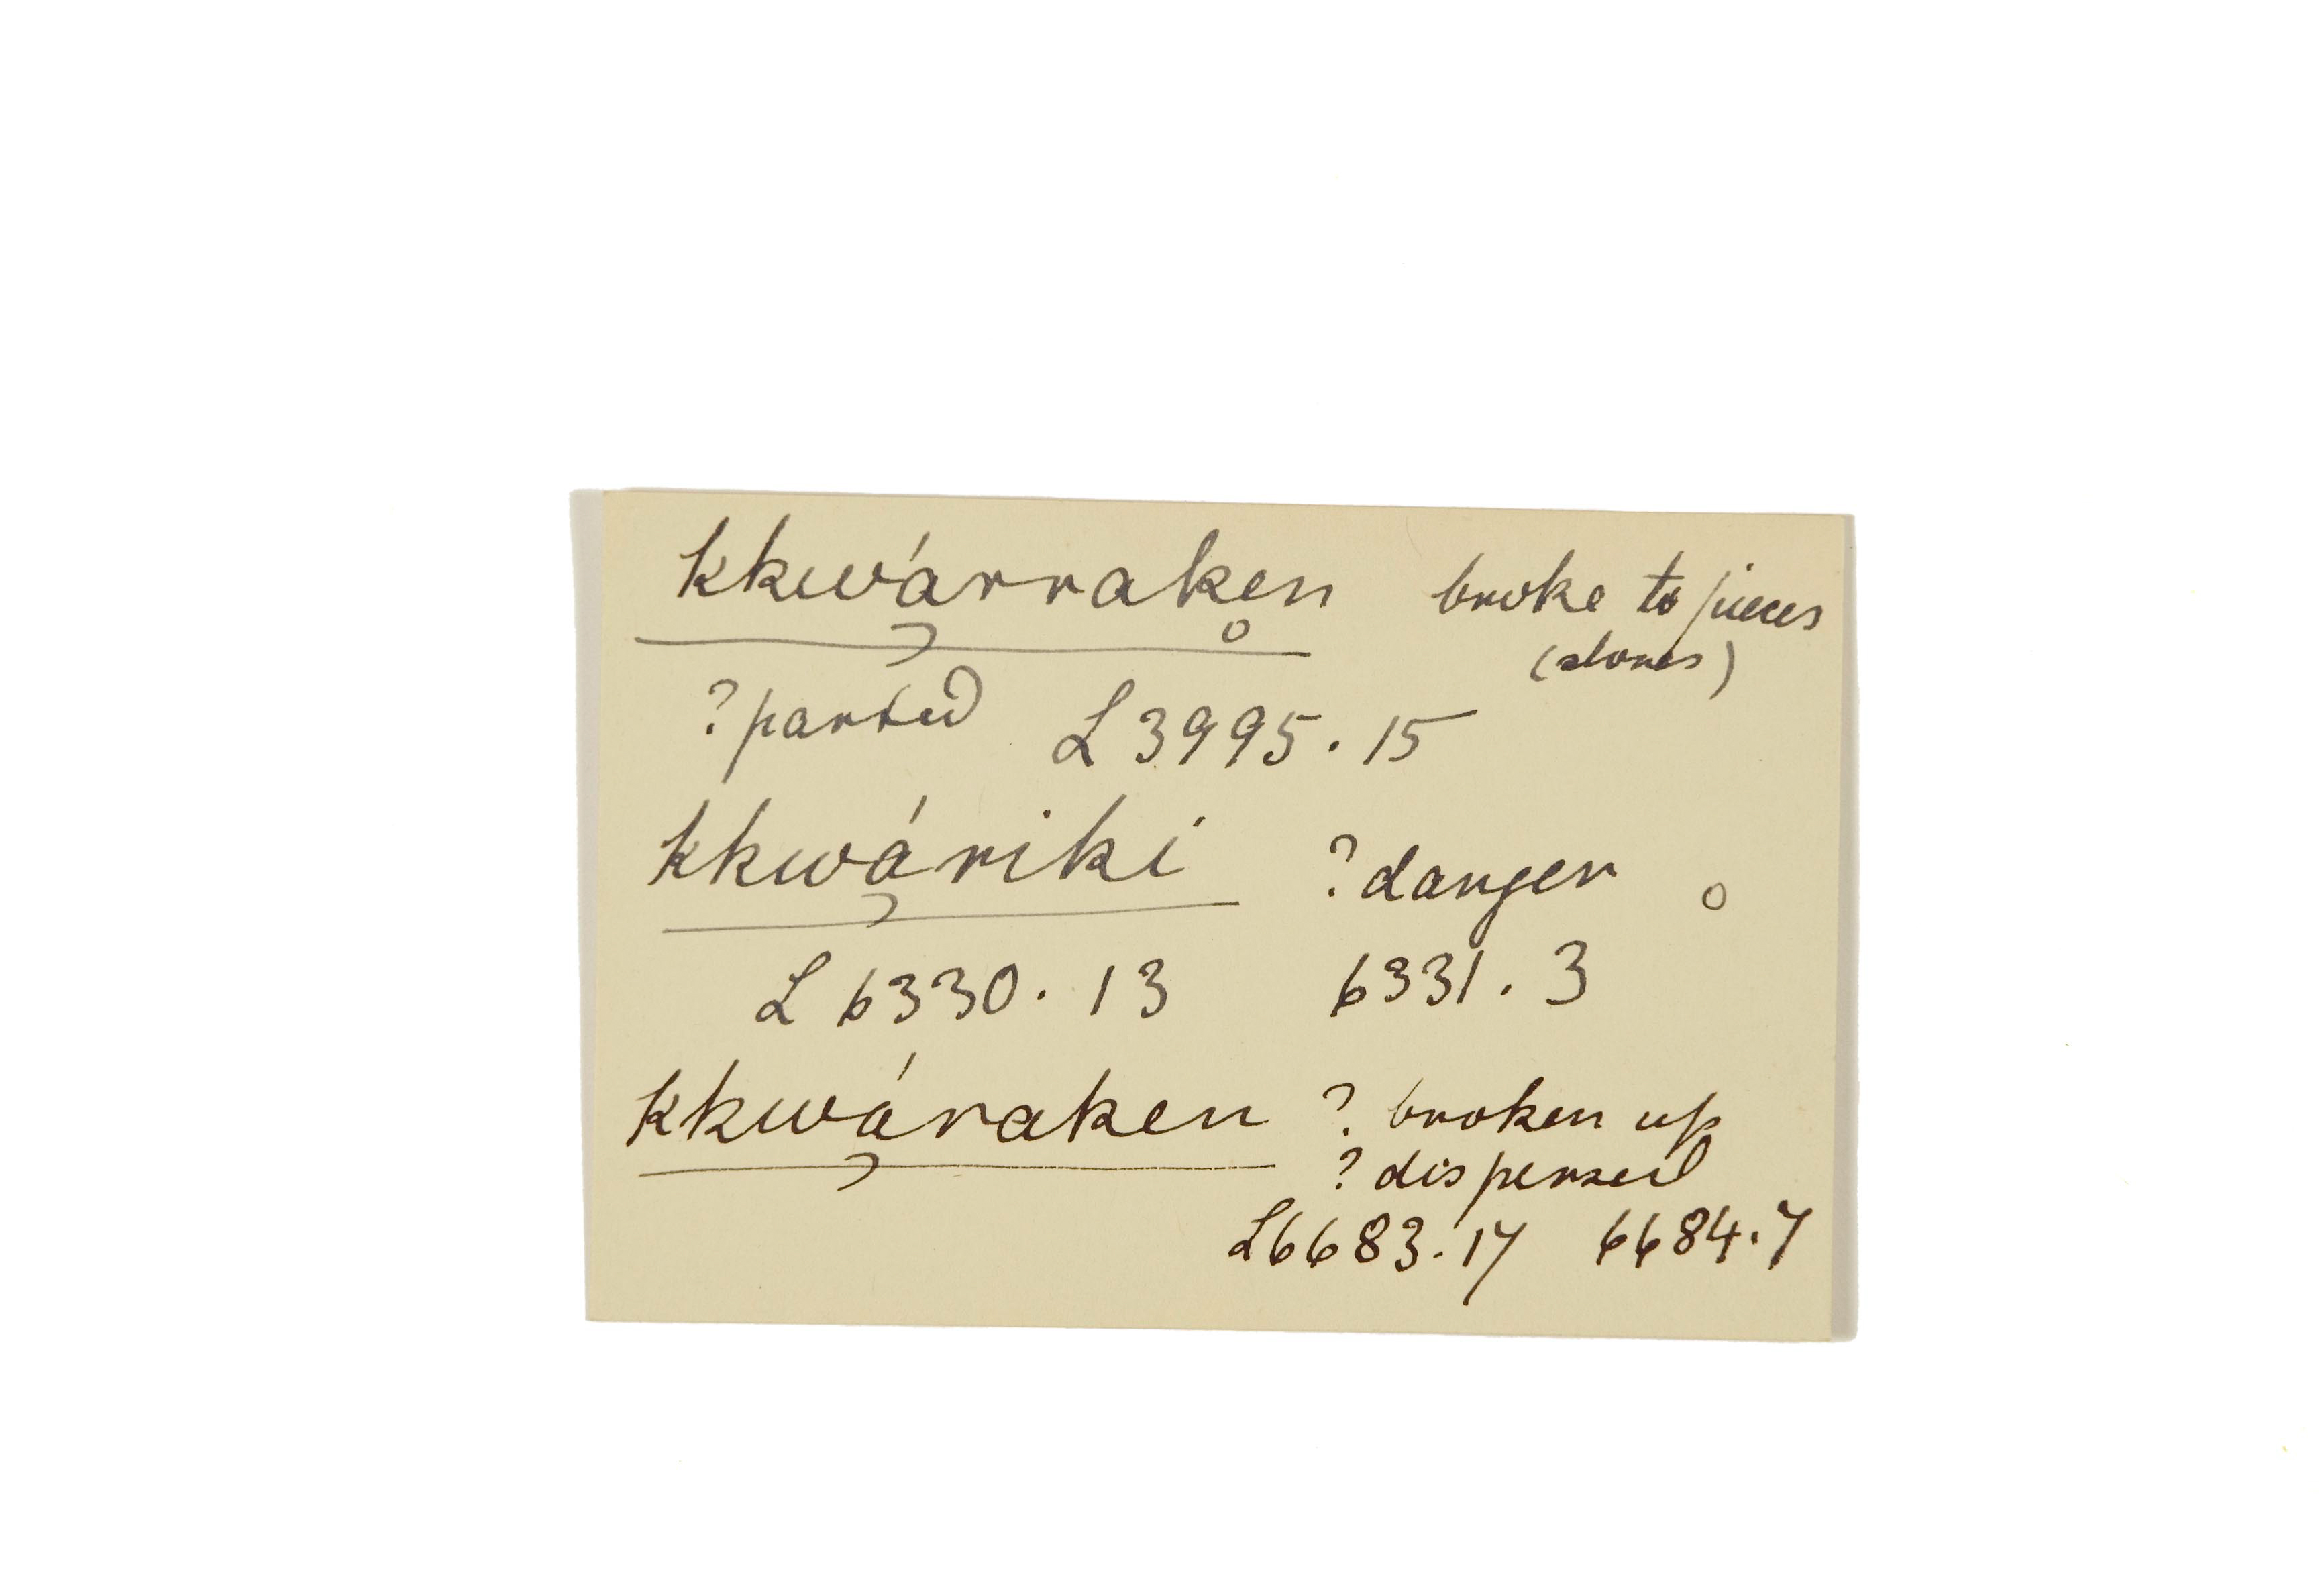 kkwárraken broke to pieces
(stones)
? parted L 3995. 15
kkwáriki ? danger o
L 6330. 13 6331. 3
kkwáraken ? broken up
? dispersed
L6683. 17 6684.7